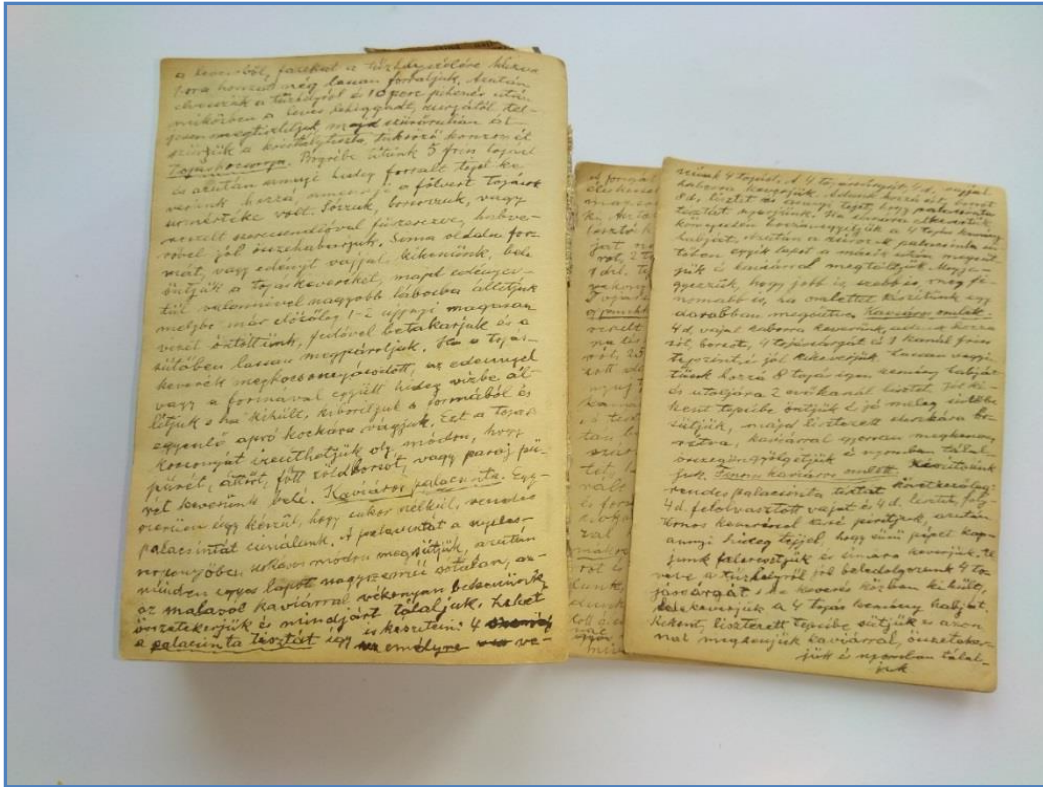 a levesből, fazekat a tűzhely szélére húzva
1 óra hosszat még lassan forraljuk. Azután
elvesszük a tűzhelyről és 10 perc pihenés után
miközben a leves lehiggadt, zsirjától tel-
jesen megtisztítjuk, majd szűrőrutián át
szűrjük a kristálytiszta, tükröző konzomét
Tojáskocsonya. Bögrébe ütünk 5 friss tojást
és azután annyi hideg forralt tejet ke-
verünk hozzá, amennyi a fölvert tojások
űrmértéke volt. Sózzuk, borsozzuk, vagy
reszelt szerecsendióval fűszerezve, habve-
rővel jól összehabarjuk. Sima oldalu for-
mát, vagy edényt vajjal kikenünk, bele
öntjük a tojáskeveréket, majd edényes-
tül valamivel nagyobb lábosba állítjuk
melybe már előzőleg 1-2 ujjnyi magasan
vizet öntöttünk, fedővel betakarjuk és a
sütőben lassan megpároljuk. Ha a tojás-
keverék megkocsonyásodott, az edénnyel
vagy a formával együtt hideg vizbe ál-
litjuk s ha kihült, kiborítjuk a formából és
egyenlő apró kockára vágjuk. Ezt a tojás
kocsonyát izesithetjük oly módon, hogy
pürét, áttört, főtt zöldborsót, vagy paraj pü-
rét keverünk belé. Kaviáros palacsinta. Egy-
szerüen úgy készül, hogy cukor nélkül, rendes
palacsintát csinálunk. A palacsintát a nyeles-
serpenyőben szokásos módon megsütjük, azután
minden egyes lapot nagyszemü sótalan, az-
az malasol kaviárral vékonyan bekenünk,
összetekerjük és mindjárt tálaljuk. Lehet
a palacsinta tésztát így is készíteni: 4 személyre ve-
szünk 4 tojást. A 4 tojássárgáját, 4 d. vajjal
habosra keverjük. Adunk hozzá sót, borsot
8 d. lisztet és annyi tejet, hogy palacsinta
tésztát nyerjünk. Ha simára elkevertük
könnyedén hozzávegyítjük a 4 tojás kemény
habját, azután a zsíros palacsinta sü-
tőben egyik lapot a másik után megsüt-
jük és kaviárral megtöltjük. Megje-
gyezzük, hogy jobb is, szebb is, meg fi-
nomabb is, ha omlettet készítünk egy
darabban megsütve. Kaviáros omlett.
4 d. vajat habosra keverünk, adunk hozzá
sót, borsot, 4 tojássárgát és 1 kanál friss
tejszínt és jól kikeverjük. Lassan vegyi-
tünk hozzá 8 tojás igen kemény habját
és utoljára 2 evőkanál lisztet. Jól ki-
kent tepsibe öntjük s jó meleg sütőbe
sütjük, majd lisztezett deszkára bo-
rítva, kaviárral gyorsan megkenve,
összegöngyölgetjük és nyomban tálal-
juk. Finom kaviáros omlett. Készítsünk
rendes palacsinta tésztát következőleg:
4 d. felolvasztott vajat és 4 d. lisztet, foly-
tonos keveréssel kissé pirítjuk, azután
annyi hideg tejjel, hogy sürü pépet kap-
junk feleresztjük és simára keverjük. El
véve a tűzhelyről jól beledolgozunk 4 to-
jássárgát s ha keverés közben kihült,
belekeverjük a 4 tojás kemény habját.
Kikent, lisztezett tepsibe sütjük és azon-
nal megkenjük kaviárral, összeteker-
jük és nyomban tálal-
juk.